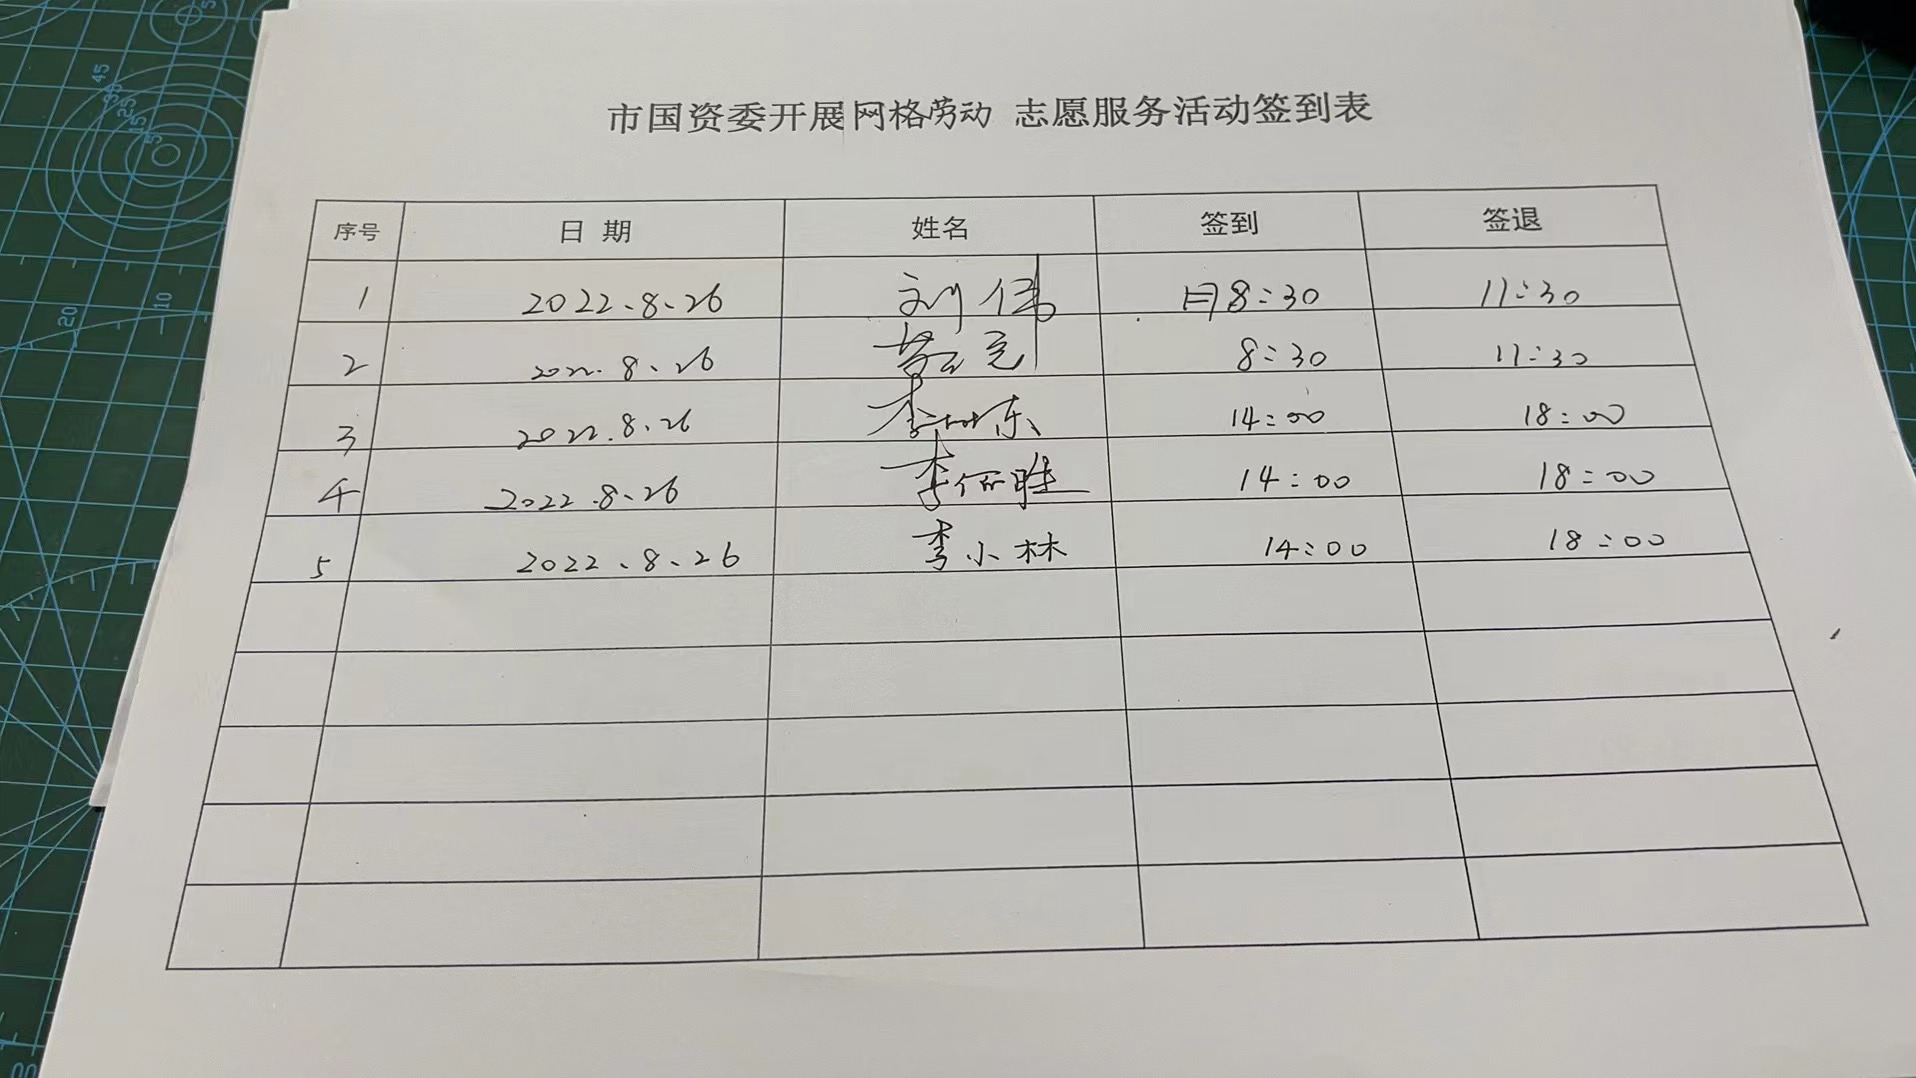 市国资委开展网格劳动 志愿服务活动签到表
序号 日 期 姓名 签到 签退
1 2022.8.26 刘伟 8:30 11:30
2 2022.8.26 8:30 11:30
3 2022.8.26 李 东 14:00 18:00
4 2022.8.26 李佰胜 14:00 18:00
5 2022.8.26 李小林 14:00 18:00